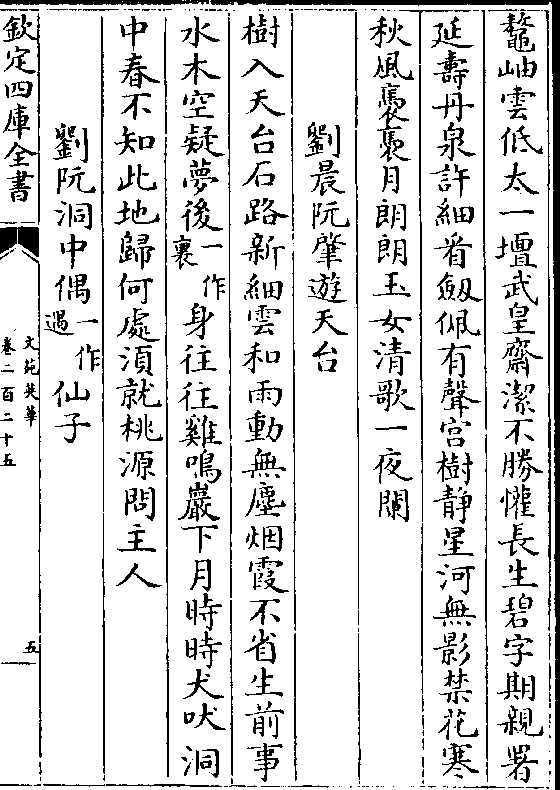 鼇岫雲低太一壇武皇齋潔不勝懽長生碧字期親署
延壽丹泉許細看劔佩有聲宫樹静星河無影禁花寒
秋風褭褭月朗朗玉女清歌一夜闌
劉晨阮肇遊天台
樹入天台石路新細雲和雨動無塵烟霞不省生前事
水木空疑夢後一作裏身往往雞鳴巖下月時時犬吠洞
中春不知此地歸何處湏就桃源問主人
劉阮洞中偶一作遇仙子
欽定四庫全書
文苑英華
卷二百二十五
五